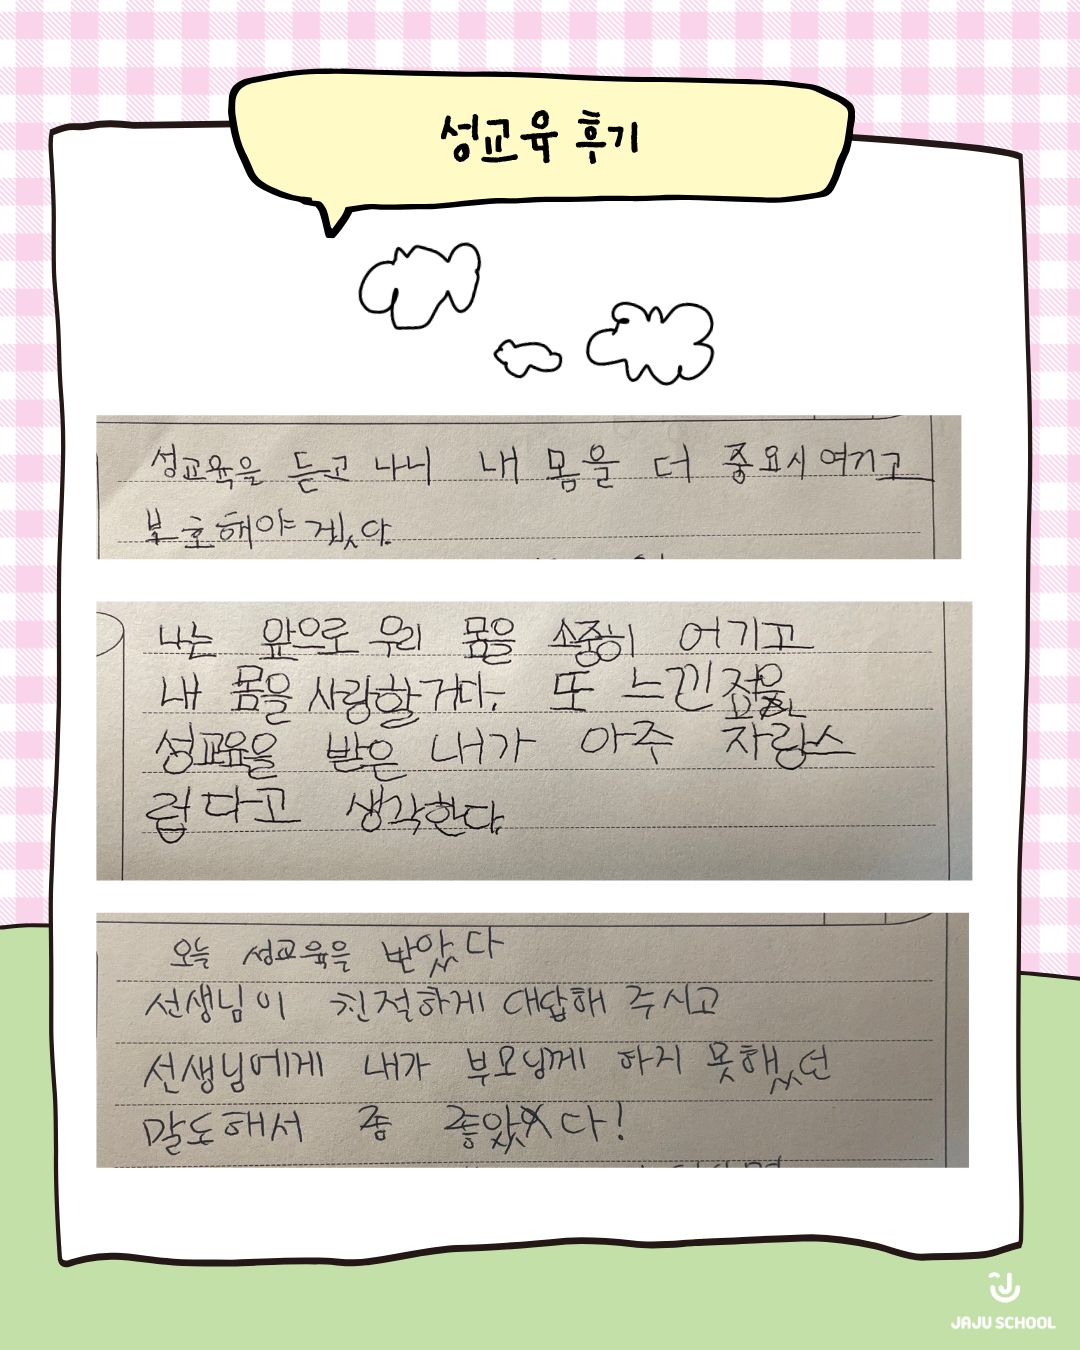 성교육 후기
성교육을 듣고 나니 내 몸을 더 중요시 여기고
보호해야겠다.
나는 앞으로 우리 몸을 소중히 여기고
내 몸을 사랑할거다. 또 느낀점은
성교육을 받은 내가 아주 자랑스
럽다고 생각한다.
오늘 성교육을 받았다
선생님이 친절하게 대답해 주시고
선생님에게 내가 부모님께 하지 못했던
말도해서 좀 좋았다!
JAJU SCHOOL